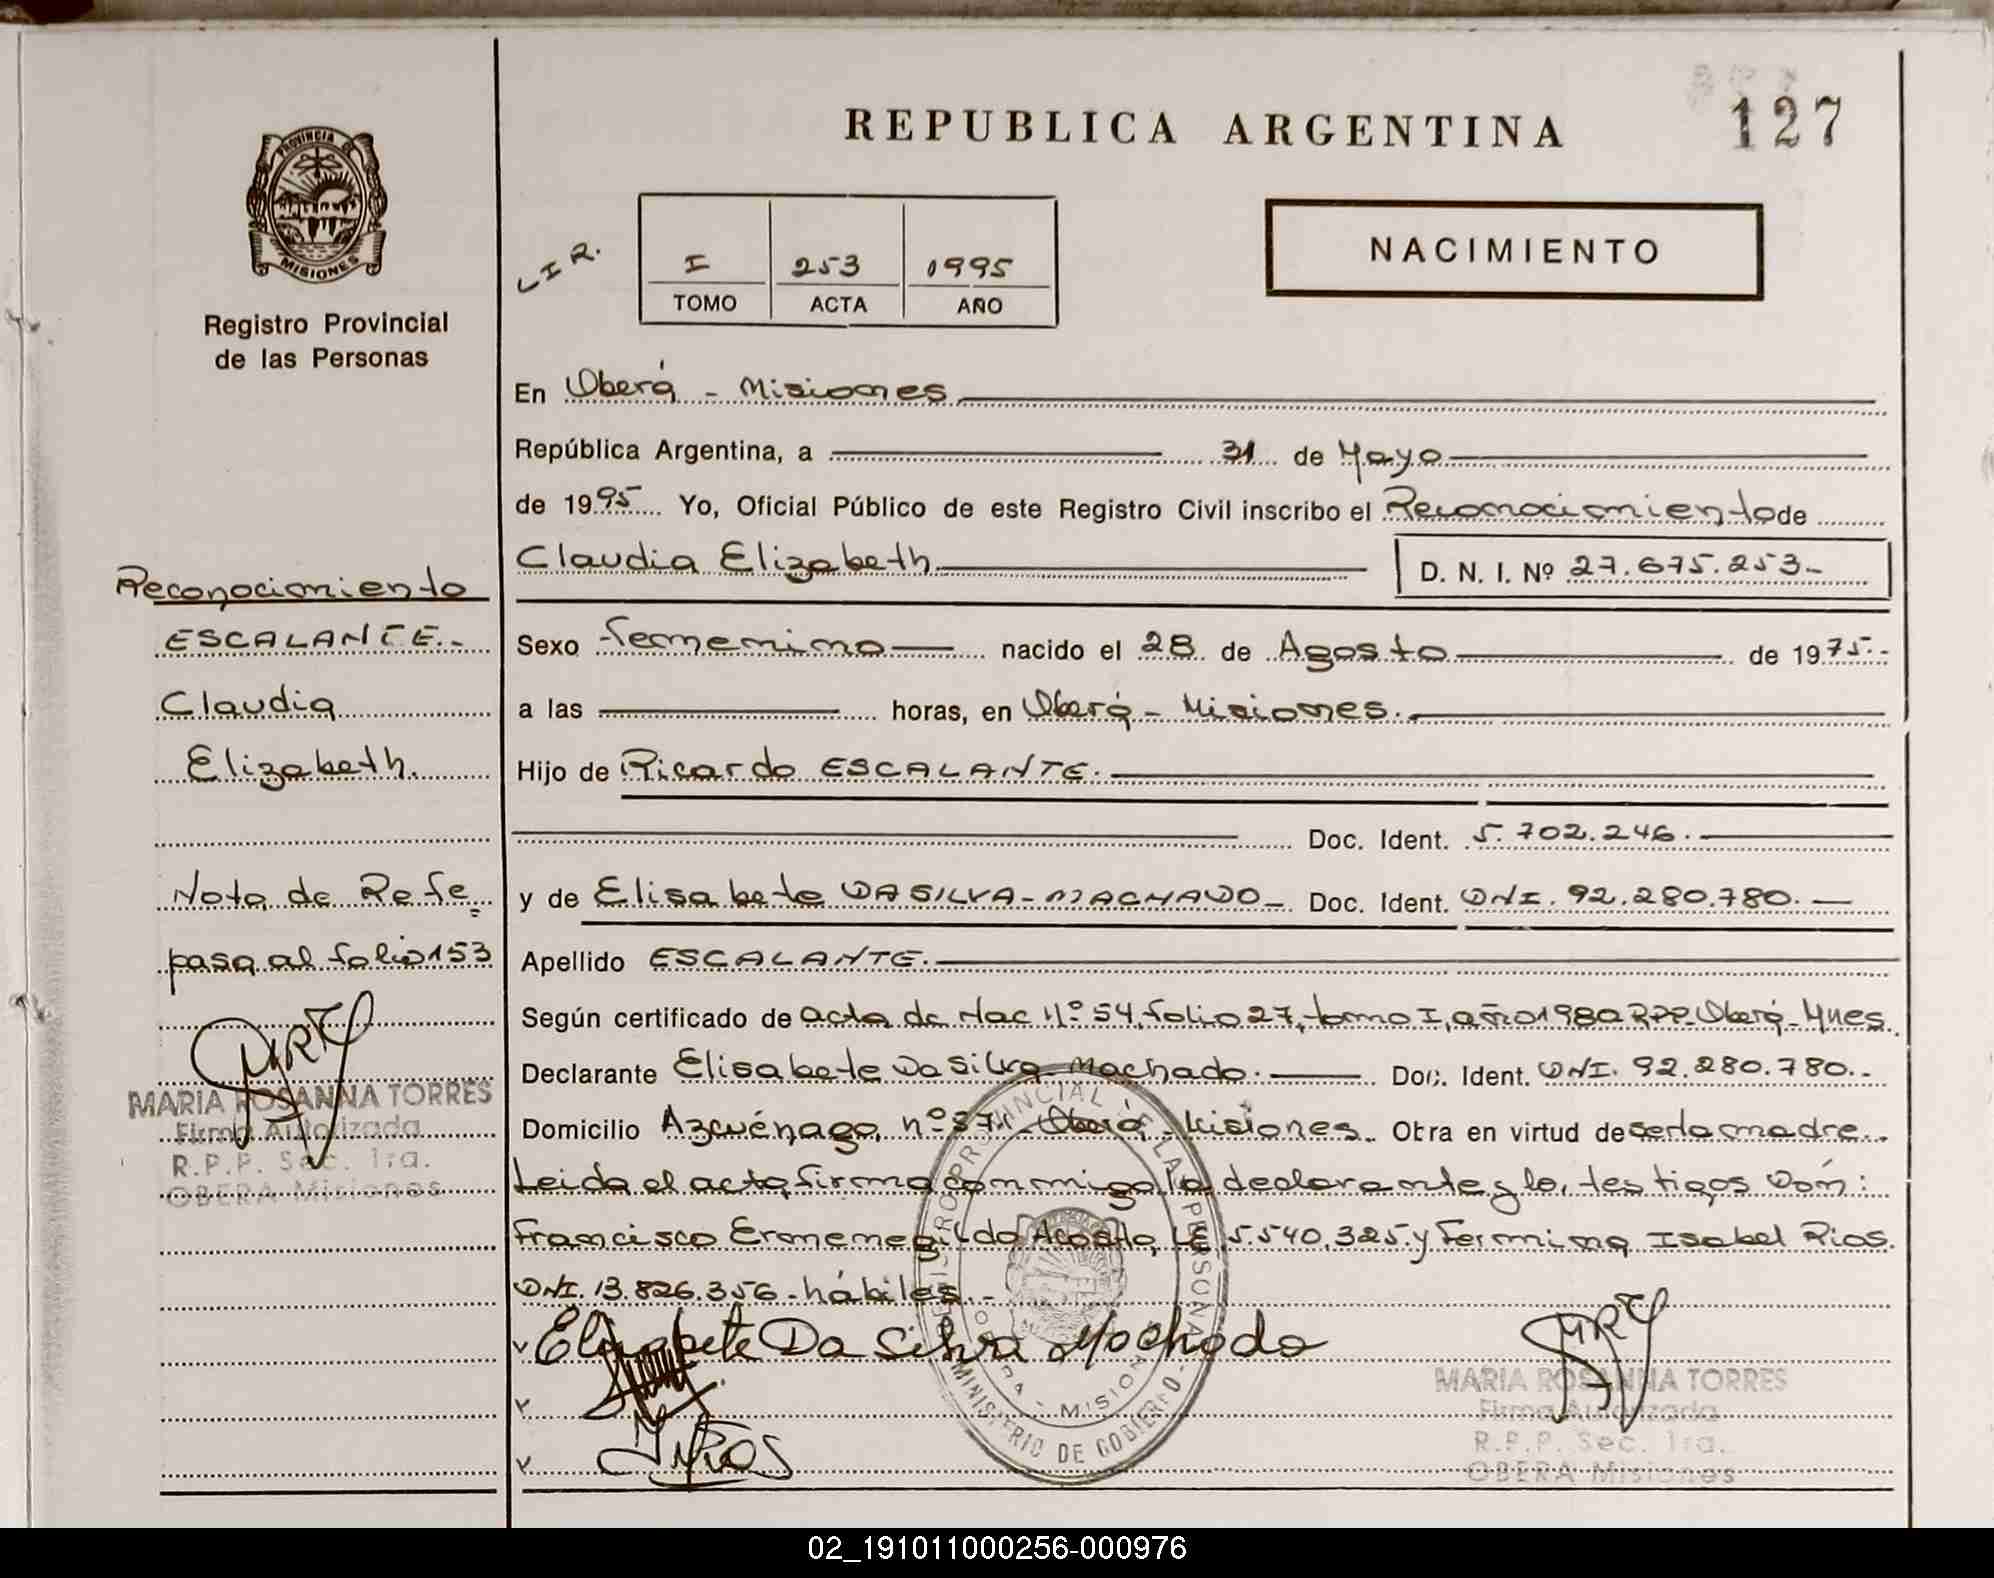 REPUBLICA ARGENTINA
127
PROVINCIA DE
MISIONES
Registro Provincial
de las Personas
L I R.
I 253 1995
TOMO ACTA AÑO
NACIMIENTO
En Oberá - Misiones
República Argentina, a 31 de Mayo
de 1995 Yo, Oficial Público de este Registro Civil inscribo el Reconocimiento de
Claudia Elizabeth
D. N. I. Nº 27.675.253.-
Sexo femenino nacido el 28 de Agosto de 1975.-
a las horas, en Oberá - Misiones.
Hijo de Ricardo ESCALANTE.
Doc. Ident. 5.702.246.
y de Elisabete DA SILVA - MACHADO - Doc. Ident. DNI. 92.280.780.
Apellido ESCALANTE.
Según certificado de acta de Nac Nº 54, folio 27, tomo I, año 1980 RPP. Oberá - Mnes.
Declarante Elisabete Da Silva Machado. Doc. Ident. DNI. 92.280.780.-
Domicilio Azcuénaga nº 371 - Oberá - Misiones. Obra en virtud de ser la madre.
Leida el acta, firma conmigo la declarante y lo, testigos Don:
Francisco Ermenegildo Acosta, LE 5.540.325. y Fermina Isabel Rios.
DNI. 13.826.356 - hábiles.-
Elisabete Da Silva Machado
Reconocimiento
ESCALANTE.-
Claudia
Elizabeth.
Nota de Refe
pasa al folio 153
MARIA ROSANNA TORRES
Firma Autorizada
R.P.P. Sec. 1ra.
OBERA Misiones
REGISTRO PROVINCIAL DE LAS PERSONAS
MINISTERIO DE GOBIERNO
OBERA - MISIONES
MARIA ROSANNA TORRES
Firma Autorizada
R.P.P. Sec. 1ra.
OBERA Misiones
02_191011000256-000976